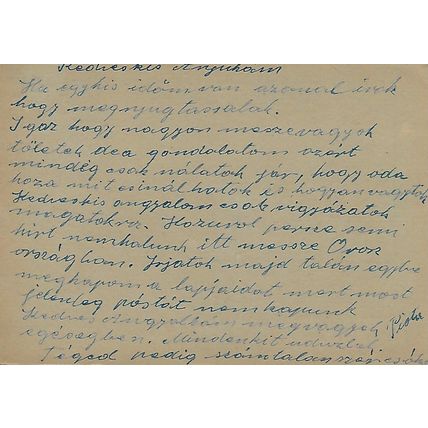 Kedveskis Anyukám
Ha egykis időm van azonal irok
hogy megnyugtassalak.
Igaz hogy nagyon messzevagyok
tőletek dea gondolatom azért
mindég csak nálatok jár, hogy oda
hoza mit csinálhatok és hogyanvagytok
Kedveskis angyalom csak vigyázatok
magatokra. Hazurol persze semi
hirt nemhalunk itt messze Orosz
országban. Irjatok majd talán egybe
megkapom a lapjaidat mert most
jelenleg póstát nemkapunk
Kedves Anyukám megvagyok
egéségben. Mindenkit üdvözlek
Téged pedig számtalanszor csóko
Pista